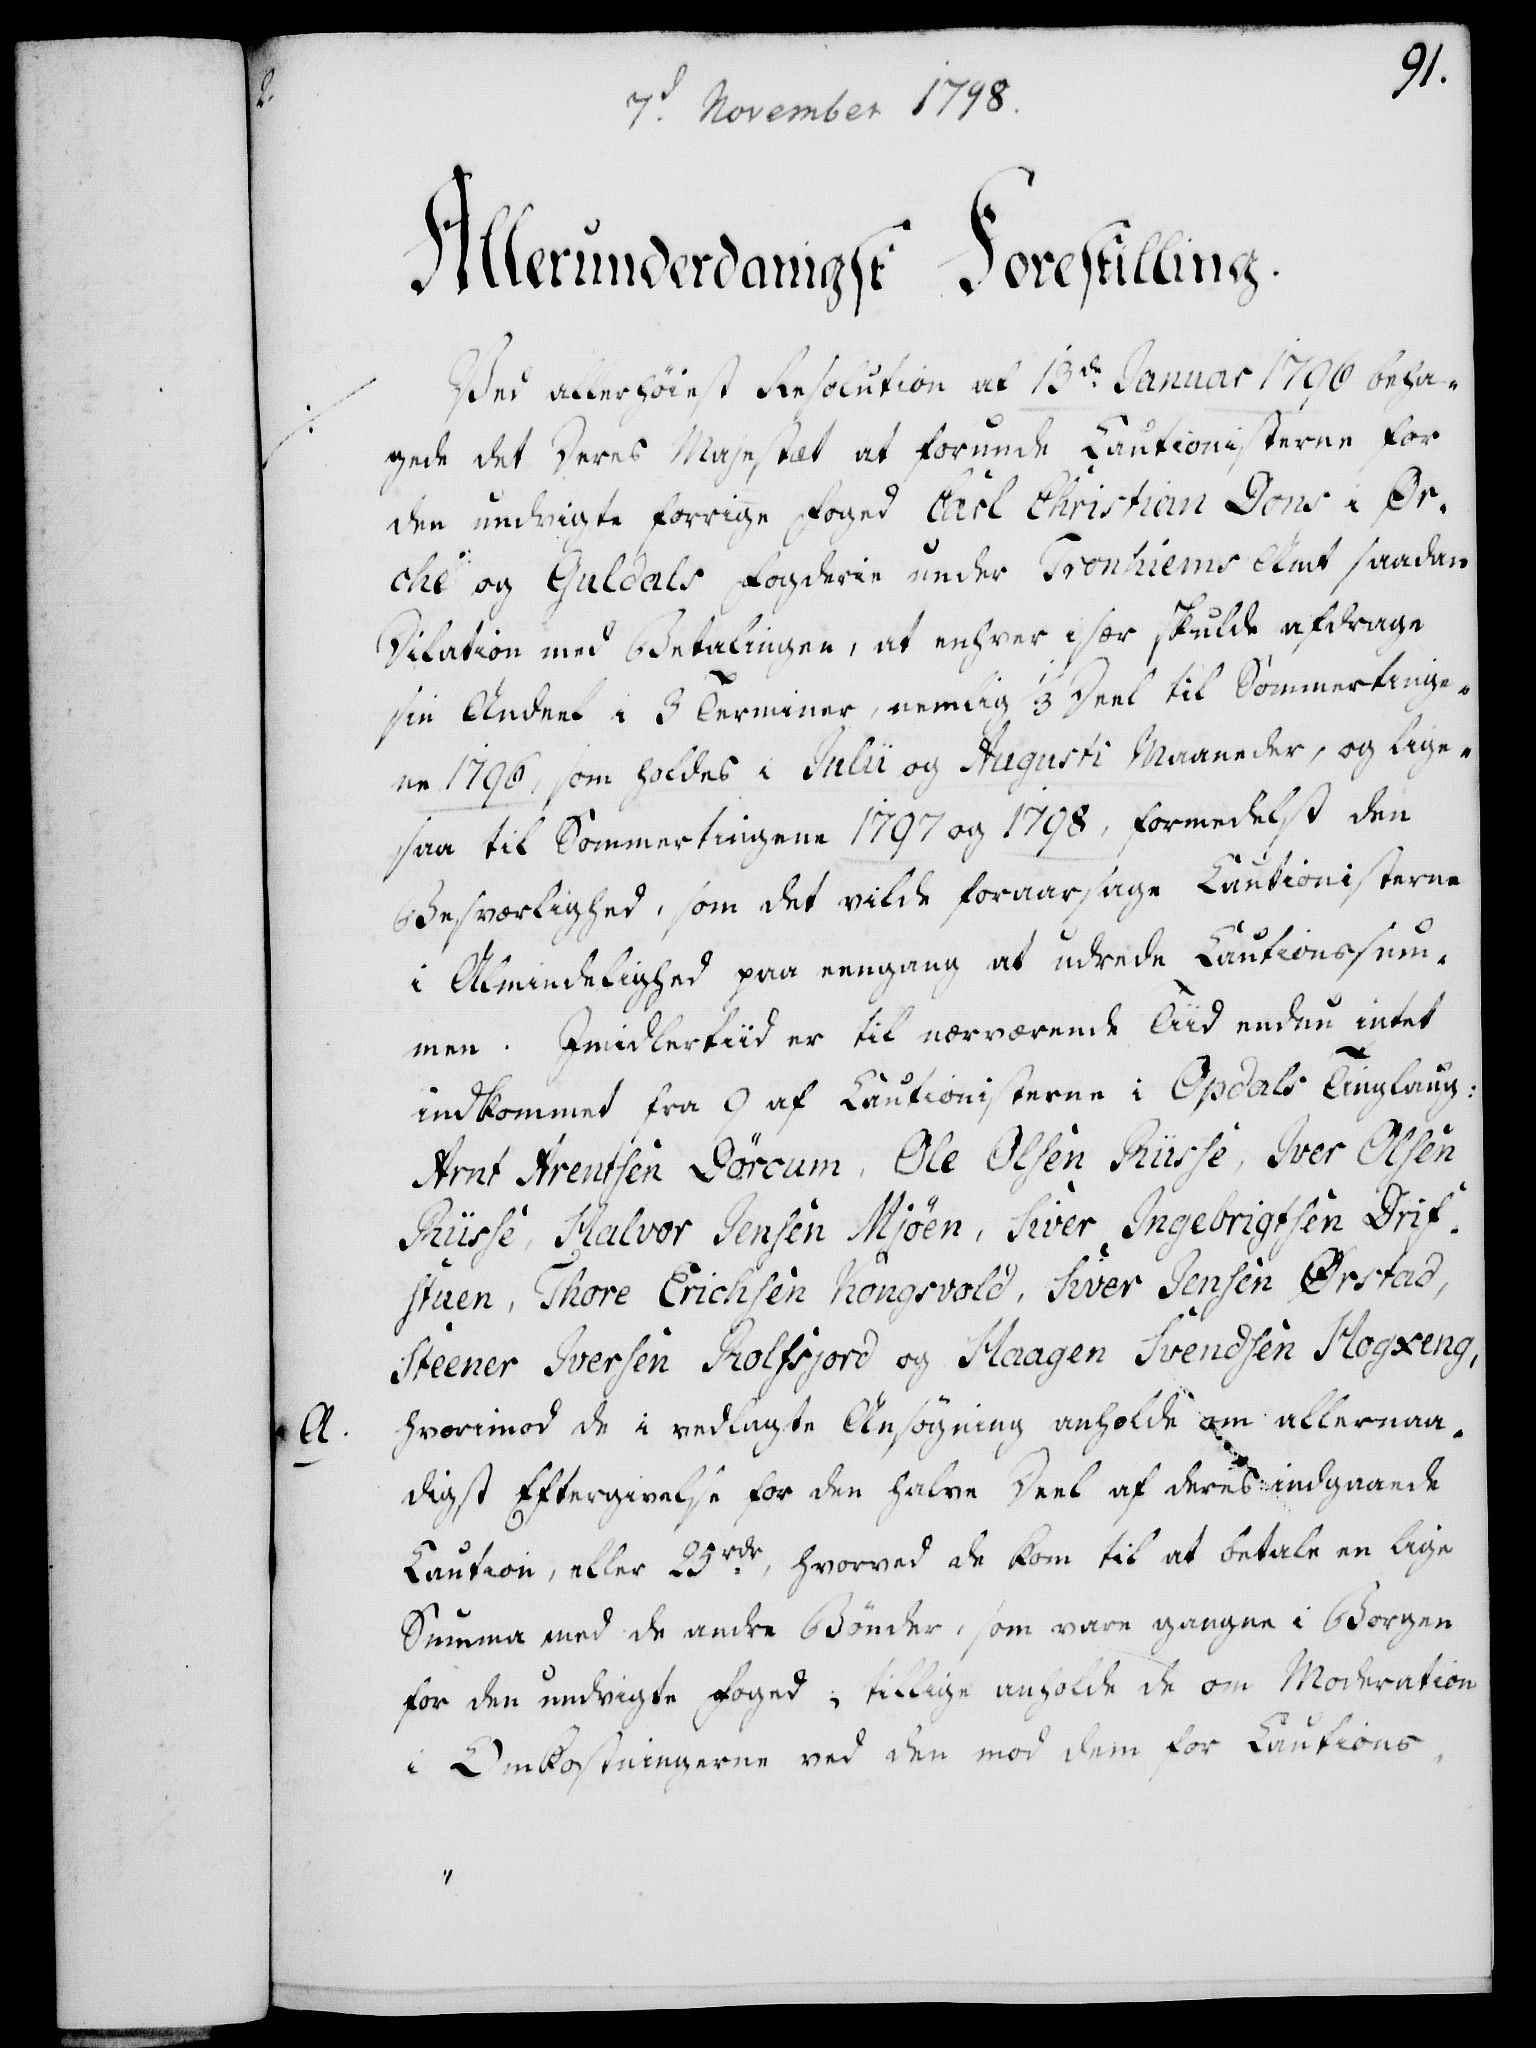 91.
7d November 1798.
Allerunderdanigst Forestilling.
Ved allerhöiest Resolution af 13de Januar 1796 beha-
gede det Deres Majestæt at forunde Cautionisterne for
den undvigte forrige Foged Carl Christian Dons i Ør-
che og Guldals Fogderie under Tronhiems Amt saadan
Dilation med Betalingen, at enhver især skulde afdrage
sin Andeel i 3 Terminer, nemlig 1/3 Deel til Sommertinge-
ne 1796, som holdes i Julii og Augusti Maaneder, og lige-
saa til Sommertingene 1797 og 1798, formedelst den
Besværlighed, som det vilde foraarsage Cautionisterne
i Almindelighed paa eengang at udrede Cautionssum-
men. Imidlertiid er til nærværende Tiid endnu intet
indkommet fra 9 af Cautionisterne i Opdals Tinglaug:
Arnt Arentsen Dörcum, Ole Olsen Riisse, Iver Olsen
Riisse, Halvor Jensen Mjöen, Siver Ingebrigtsen Drif-
stuen, Thore Erichsen Kongsvold, Siver Jensen Ørstad,
Steener Iversen Rolfsjord og Haagen Svendsen Hogxeng,
A. hvorimod de i vedlagte Ansögning anholde om allernaa-
digst Eftergivelse for den halve Deel af deres indgaaede
Caution, eller 25 rdr, hvorved de kom til at betale en lige
Summa med de andre Bönder, som vare gangne i Borgen
for den undvigte Foged; tillige anholde de om Moderation
i Omkostningerne ved den mod dem for Cautions-
"